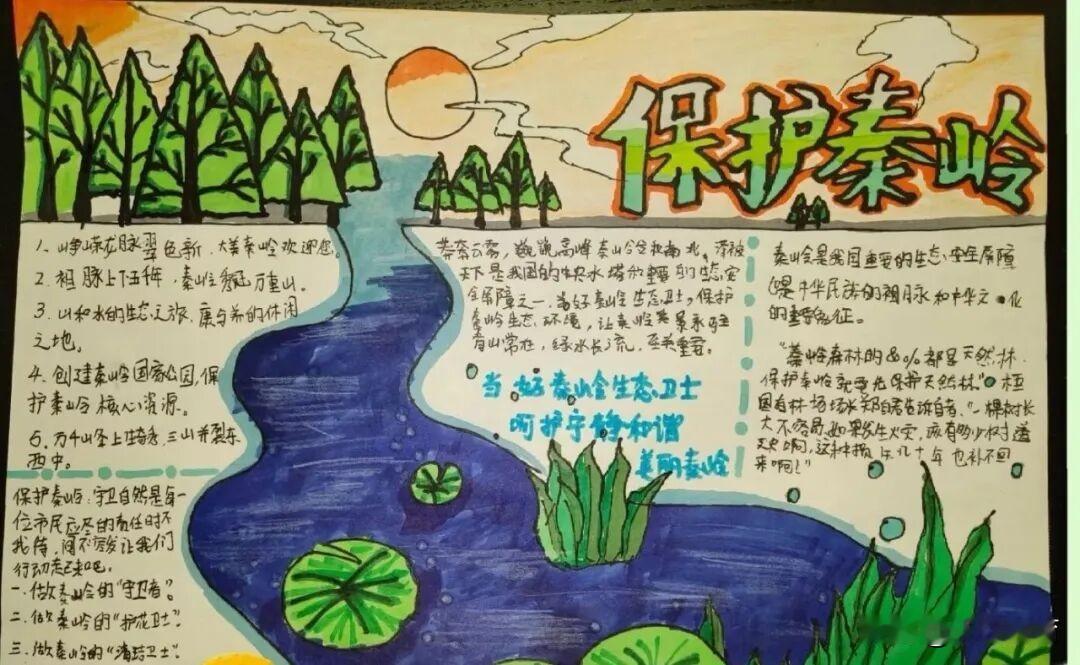 保护秦岭
1. 峥嵘龙脉翠色新,大美秦岭欢迎您。
2. 祖脉上下五千年,秦岭巍巍万重山。
3. 山和水的生态之旅,康与养的休闲
之地。
4. 创建秦岭国家公园,保
护秦岭核心资源。
5. 万千山圣上佳秀,三山并裂东
西中。
保护秦岭,守卫自然是每一
位市民应尽的责任时不
我待,间不容发让我们
行动起来吧。
一.做秦岭的“守卫者”。
二.做秦岭的“护花卫士”。
三.做秦岭的“清洁卫士”。
莽莽云雾,巍巍高峰秦岭分南北,泽被
天下是我国的中央水塔的重要的生态安
全屏障之一,当好秦岭生态卫士,保护
秦岭生态环境,让秦岭美景永驻
青山常在,绿水长流,至关重要。
当好秦岭生态卫士
呵护宁静和谐
美丽秦岭
秦岭是我国重要的生态安全屏障
是中华民族的祖脉和中华文化
的重要象征。
“秦岭森林的80%都是天然林
保护秦岭就要先保护天然林”。
国有林场场长郑自告诉记者,“一棵树长
大不容易如果发生火灾,该有多少树遭
灾啊,这种损失几十年也补不回
来啊!”